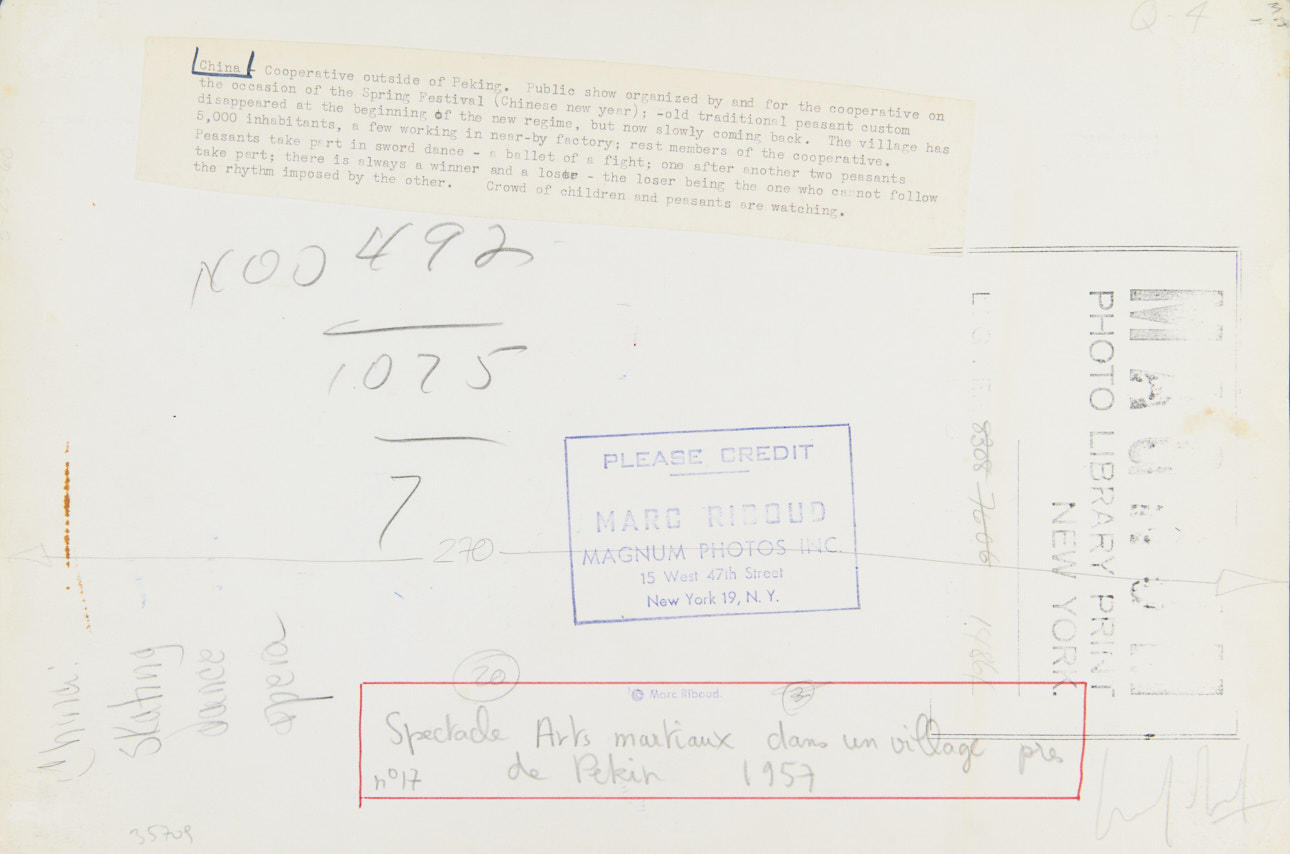 Q-4
China - Cooperative outside of Peking. Public show organized by and for the cooperative on
the occasion of the Spring Festival (Chinese new year); -old traditional peasant custom
disappeared at the beginning of the new regime, but now slowly coming back. The village has
5,000 inhabitants, a few working in near-by factory; rest members of the cooperative.
Peasants take part in sword dance - a ballet of a fight; one after another two peasants
take part; there is always a winner and a loser - the loser being the one who cannot follow
the rhythm imposed by the other. Crowd of children and peasants are watching.
N00492
1075
7
270
PLEASE CREDIT
MARC RIBOUD
MAGNUM PHOTOS INC.
15 West 47th Street
New York 19, N. Y.
MAGNUM
PHOTO LIBRARY PRINT
NEW YORK
China:
Skating
dance
opera
20
© Marc Riboud
Spectacle Arts martiaux dans un village pres
n°17 de Pekin 1957
35709